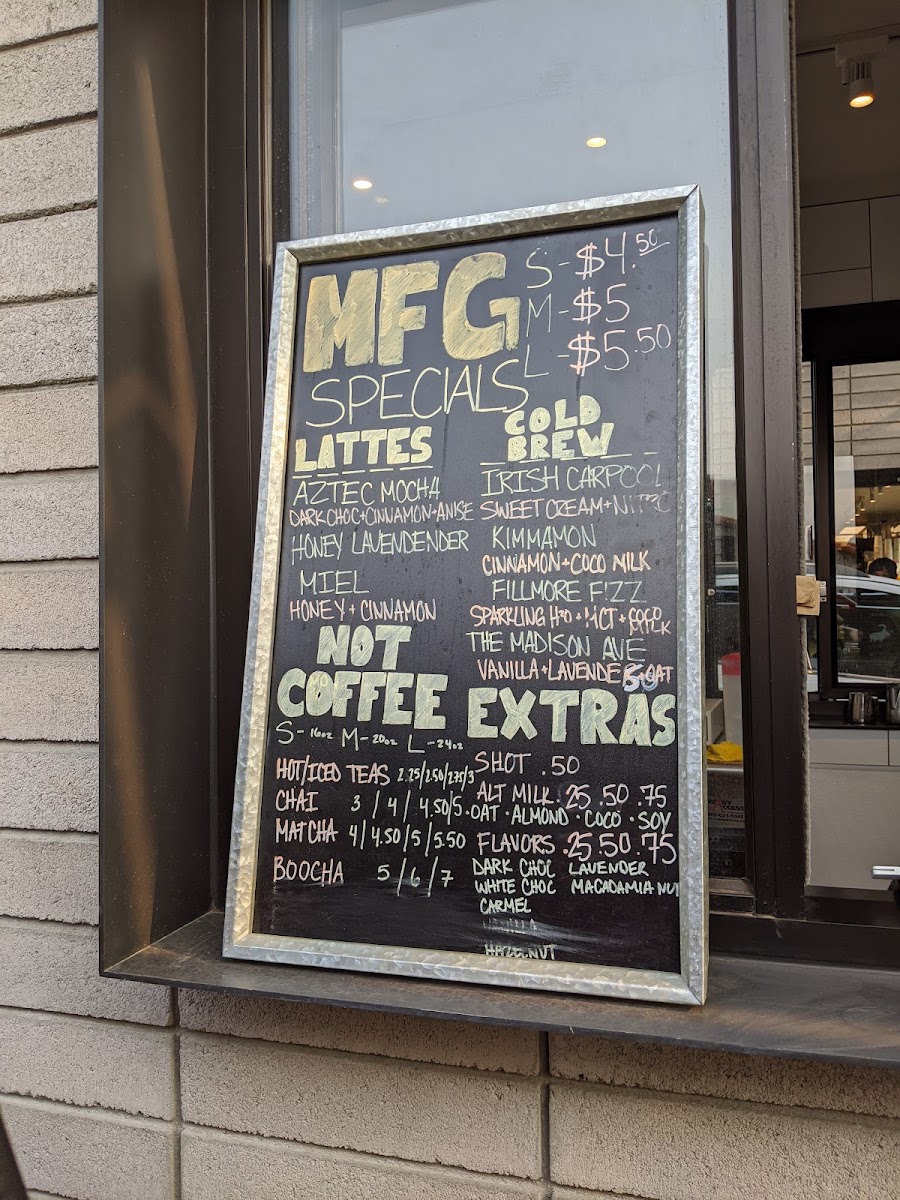 MFG
SPECIALS
S - $4.50
M - $5
L - $5.50
LATTES
AZTEC MOCHA
DARK CHOC+CINNAMON+ANISE
HONEY LAUENDENDER
MIEL
HONEY + CINNAMON
COLD
BREW
IRISH CARPOOL
SWEET CREAM+NITRO
KIMMAMON
CINNAMON+COCO MILK
FILLMORE F!ZZ
SPARKLING H2O + MCT + COCO
MILK
THE MADISON AVE
VANILLA+LAVENDER+OAT
NOT
COFFEE
S- 16oz M- 20oz L- 24oz
HOT/ICED TEAS 2.25/2.50/2.75/3
CHAI 3 / 4 / 4.50/5
MATCHA 4/4.50/5/5.50
BOOCHA 5/6/7
EXTRAS
SHOT .50
ALT MILK .25 .50 .75
·OAT ·ALMOND ·COCO ·SOY
FLAVORS .25 .50 .75
DARK CHOC LAVENDER
WHITE CHOC MACADAMIA NUT
CARMEL
VANILLA
HAZELNUT